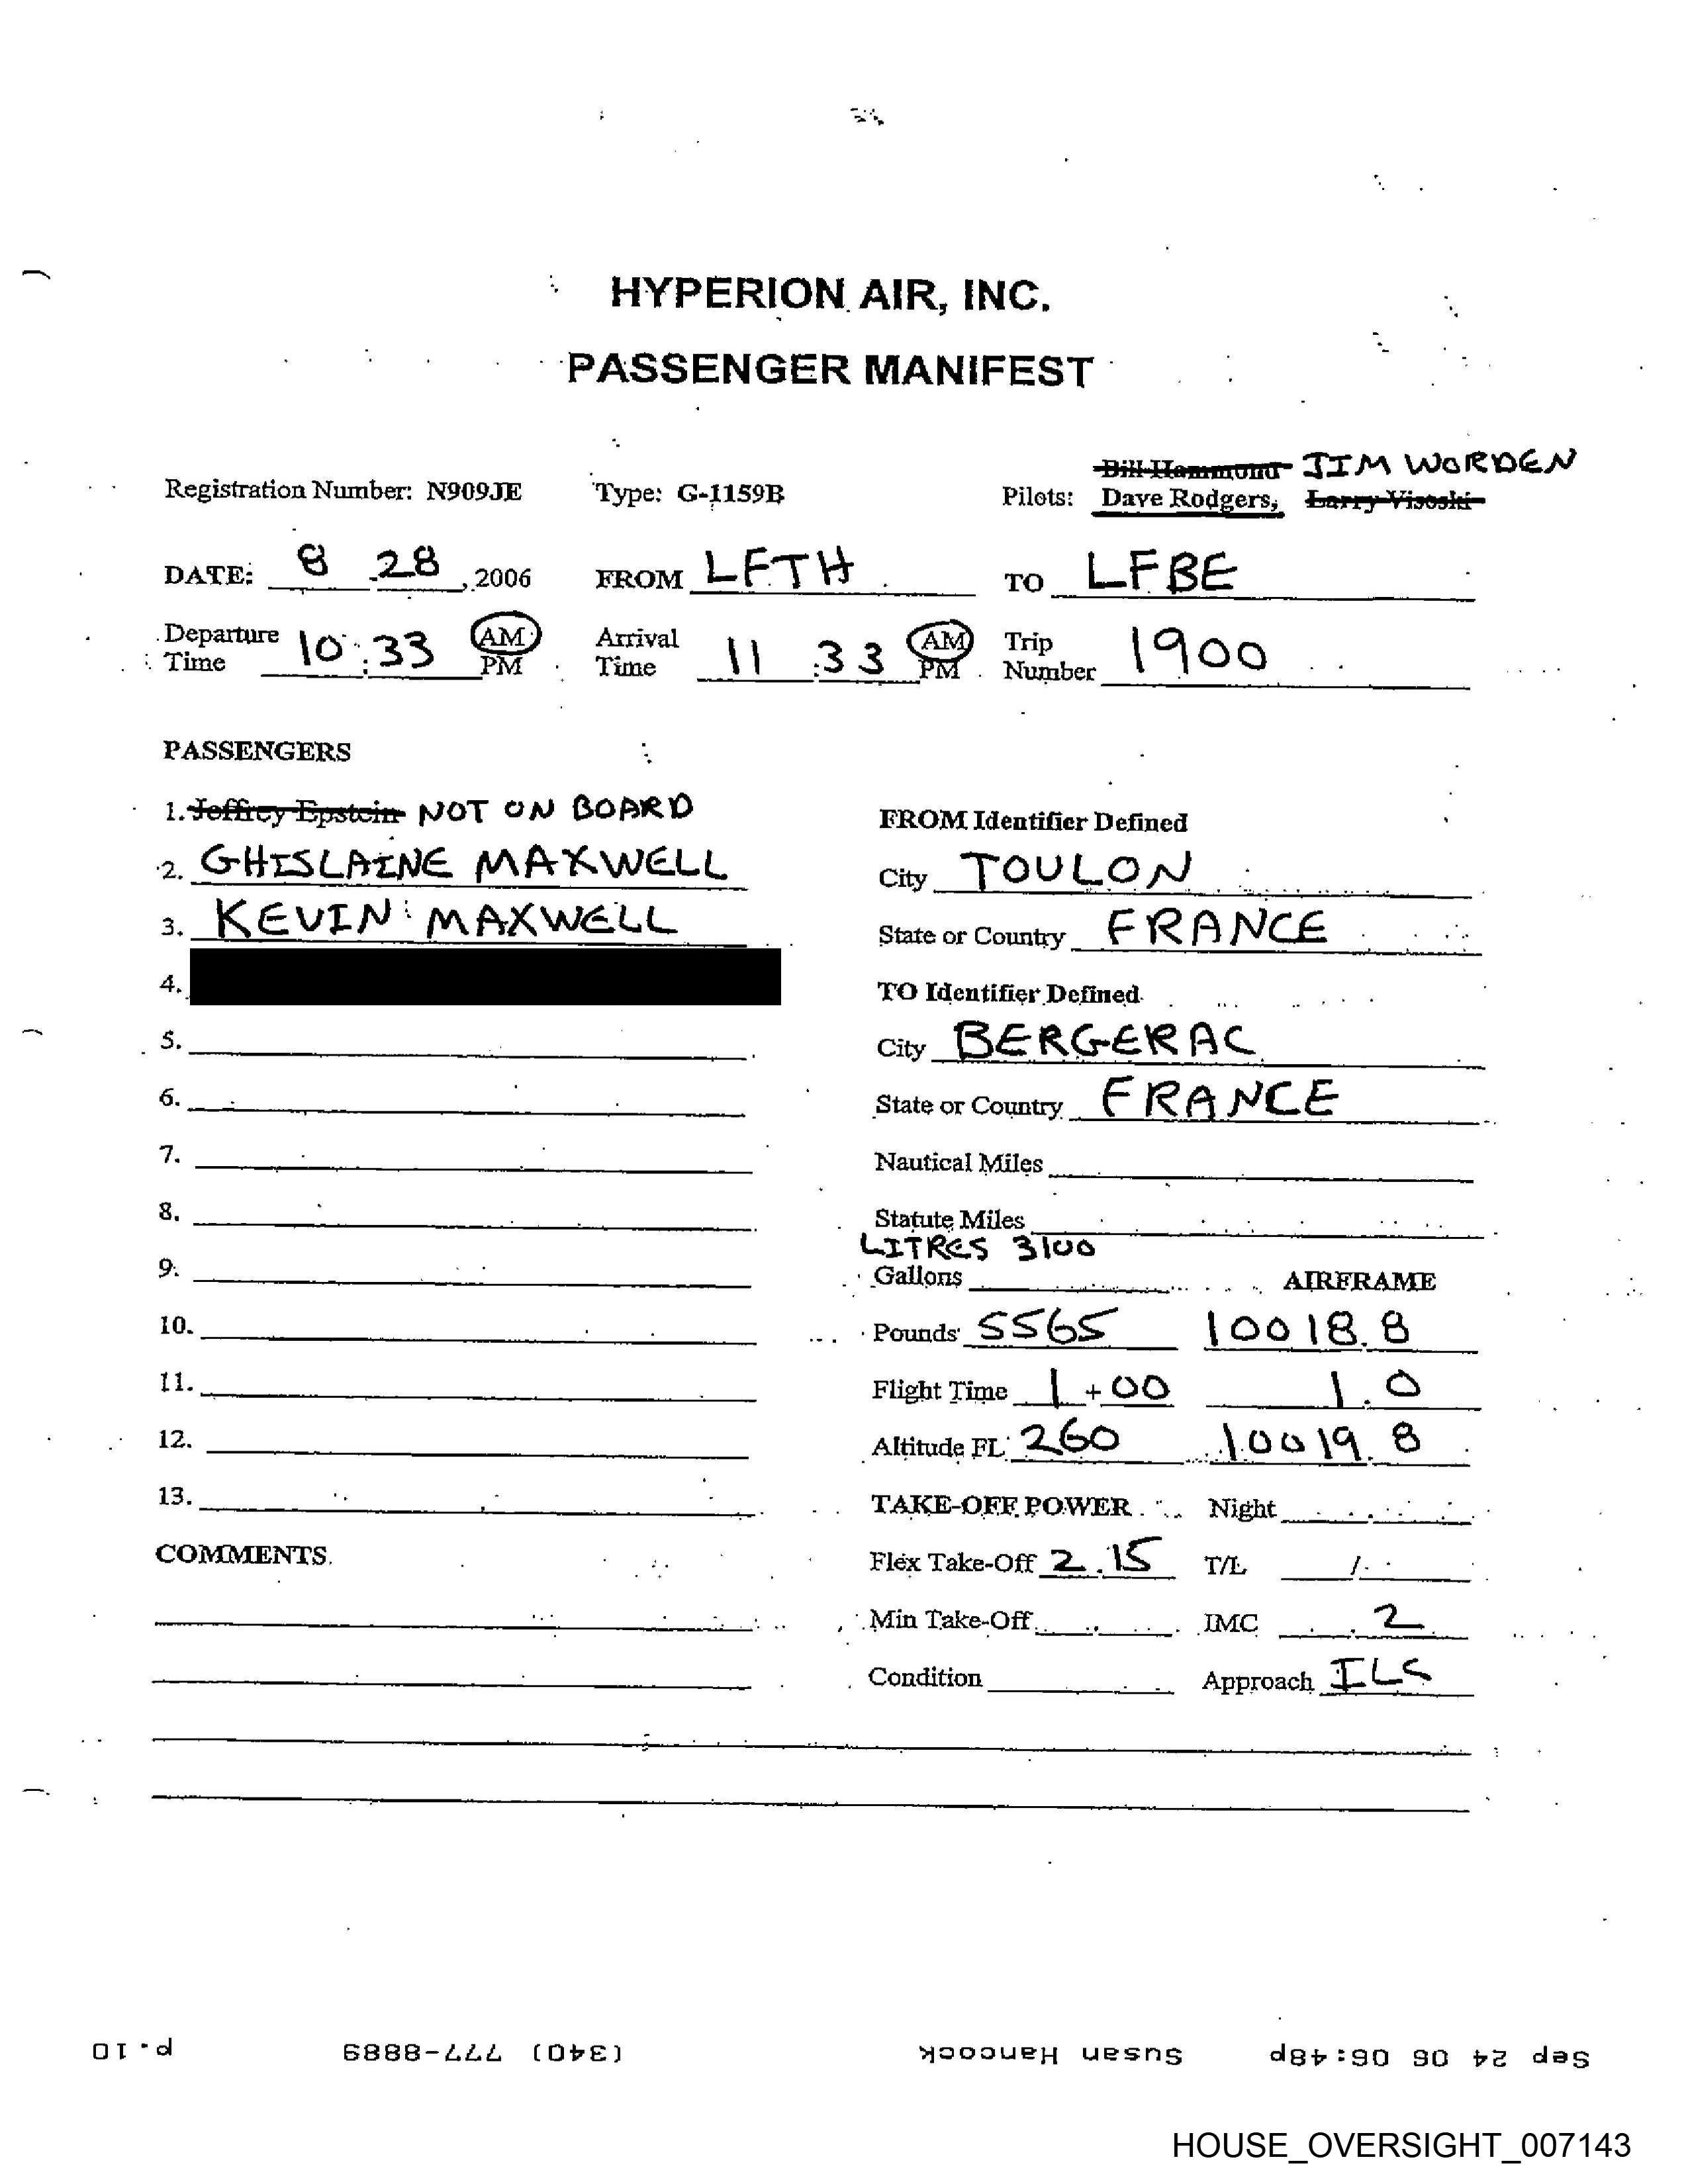 HYPERION AIR, INC.
PASSENGER MANIFEST
Bill Hammond JIM WORDEN
Registration Number: N909JE Type: G-1159B Pilots: Dave Rodgers, Larry Visoski
DATE: 8 28, 2006 FROM LFTH TO LFBE
Departure Time 10:33 AM PM Arrival Time 11:33 AM PM Trip Number 1900
PASSENGERS
1. Jeffrey Epstein NOT ON BOARD
2. GHISLAINE MAXWELL
3. KEVIN MAXWELL
4.
5.
6.
7.
8.
9.
10.
11.
12.
13.
COMMENTS
FROM Identifier Defined
City TOULON
State or Country FRANCE
TO Identifier Defined
City BERGERAC
State or Country FRANCE
Nautical Miles
Statute Miles
LITRES 3100
Gallons AIRFRAME
Pounds 5565 10018.8
Flight Time 1+00 1.0
Altitude FL 260 10019.8
TAKE-OFF POWER Night
Flex Take-Off 2.15 T/L /
Min Take-Off IMC .2
Condition Approach ILS
Sep 24 06 06:48p Susan Hancock (340) 777-8889 p.10
HOUSE_OVERSIGHT_007143